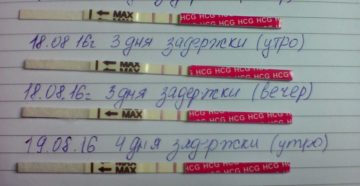 ← MAX HCG HCG HCG HCG HCG
18.08.16г 3 дня задержки (утро)
← MAX HCG HCG HCG HCG HCG
18.08.16г 3 дня задержки (вечер)
← MAX HCG HCG HCG HCG HCG
19.08.16 4 дня задержки (утро)
← MAX HCG HCG HCG HCG HCG